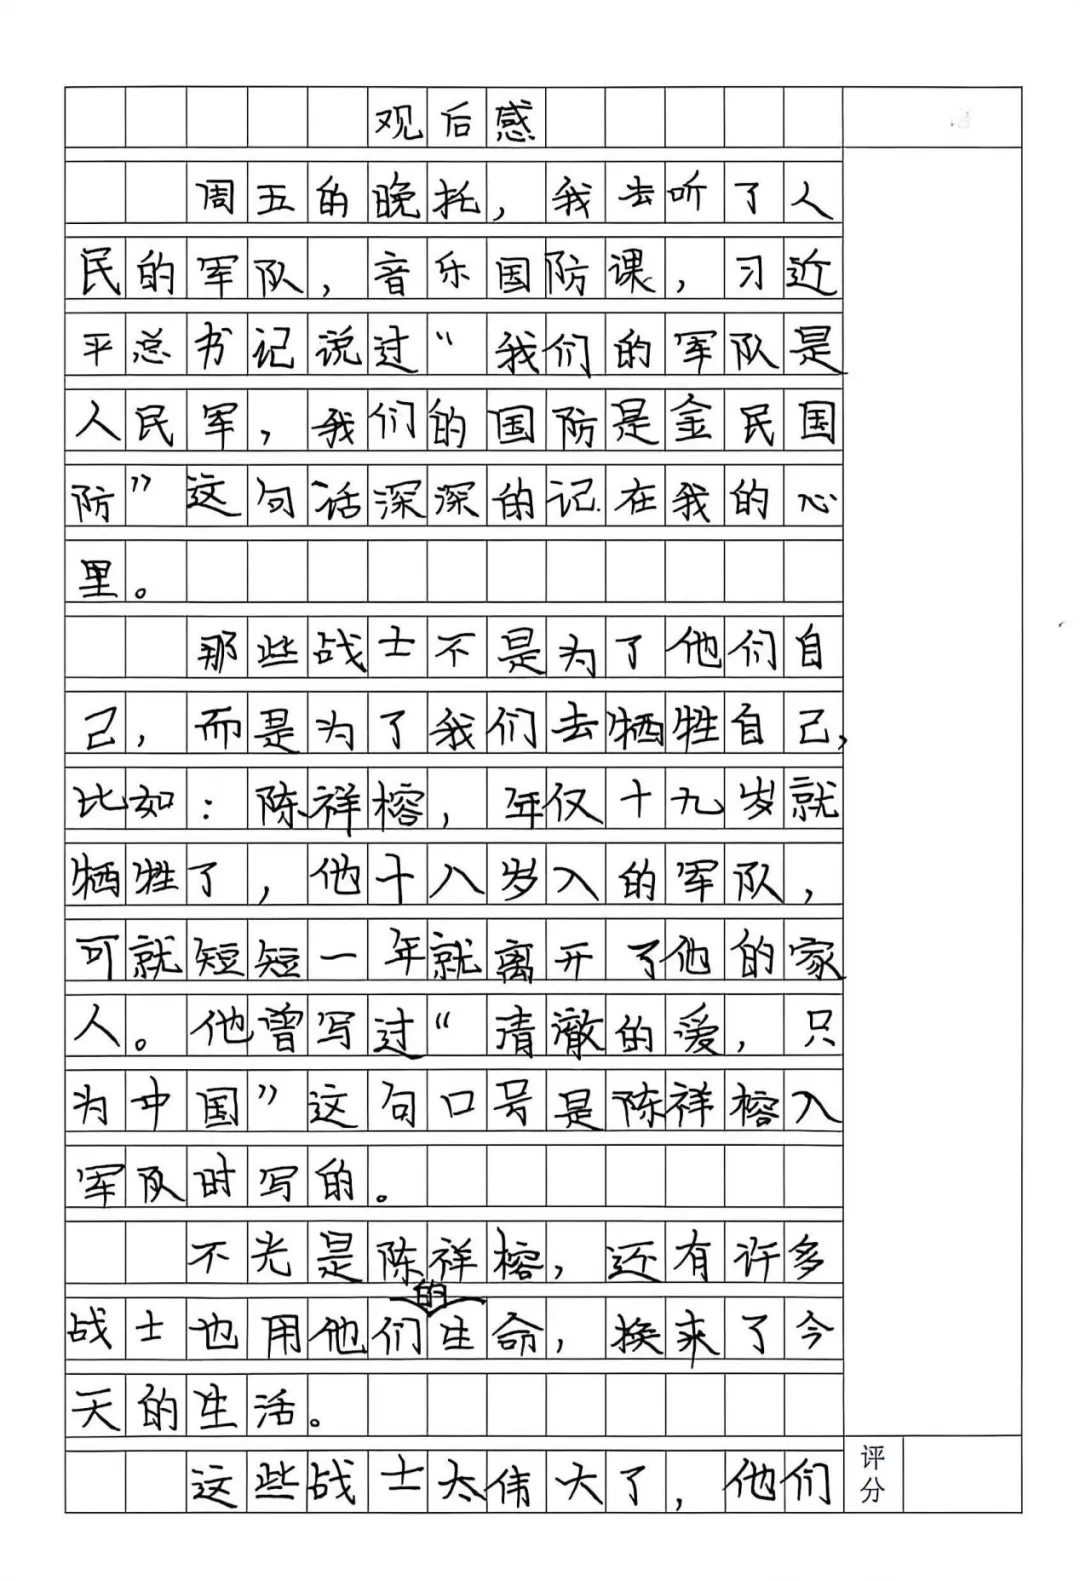 观后感
周五的晚托，我去听了人
民的军队，音乐国防课，习近
平总书记说过“我们的军队是
人民军，我们的国防是金民国
防”这句话深深的记在我的心
里。
那些战士不是为了他们自
己，而是为了我们去牺牲自己，
比如：陈祥榕，年仅十九岁就
牺牲了，他十八岁入的军队，
可就短短一年就离开了他的家
人。他曾写过“清澈的爱，只
为中国”这句口号是陈祥榕入
军队时写的。
不光是陈祥榕，还有许多
战士也用他们的生命，换来了今
天的生活。
这些战士太伟大了，他们
评分